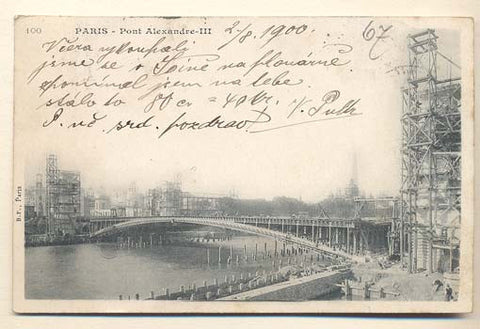 100
PARIS - Pont Alexandre-III
2/8. 1900.
67
Včera vykoupali
jsme se v Seině na plovárně
vzpomínal jsem na tebe
stálo to 80 cr = 40 kr.
V. Pulk
P. uč. srd. pozdrav
B.F., Paris